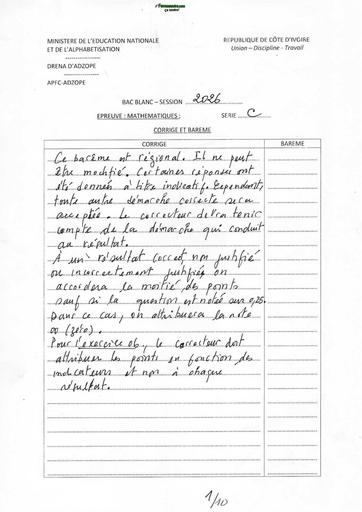 MINISTERE DE L'EDUCATION NATIONALE
ET DE L'ALPHABETISATION
REPUBLIQUE DE CÔTE D'IVOIRE
Union – Discipline - Travail
DRENA D'ADZOPE
APFC-ADZOPE
BAC BLANC – SESSION 2026
EPREUVE : MATHEMATIQUES : SERIE C
CORRIGE ET BAREME
CORRIGE BAREME
Ce barème est régional. Il ne peut
être modifié. Certaines réponses ont
été données à titre indicatif. Cependant,
toute autre démarche correcte sera
acceptée. Le correcteur devra tenir
compte de la démarche qui conduit
au résultat.
À un résultat correct non justifié
ou incorrectement justifié on
accordera la moitié des points
sauf si la question est notée sur 0,25.
Dans ce cas, on attribuera la note
00 (zéro).
Pour l'exercice 06, le correcteur doit
attribuer les points en fonction des
indicateurs et non à chaque
résultat.
1/10